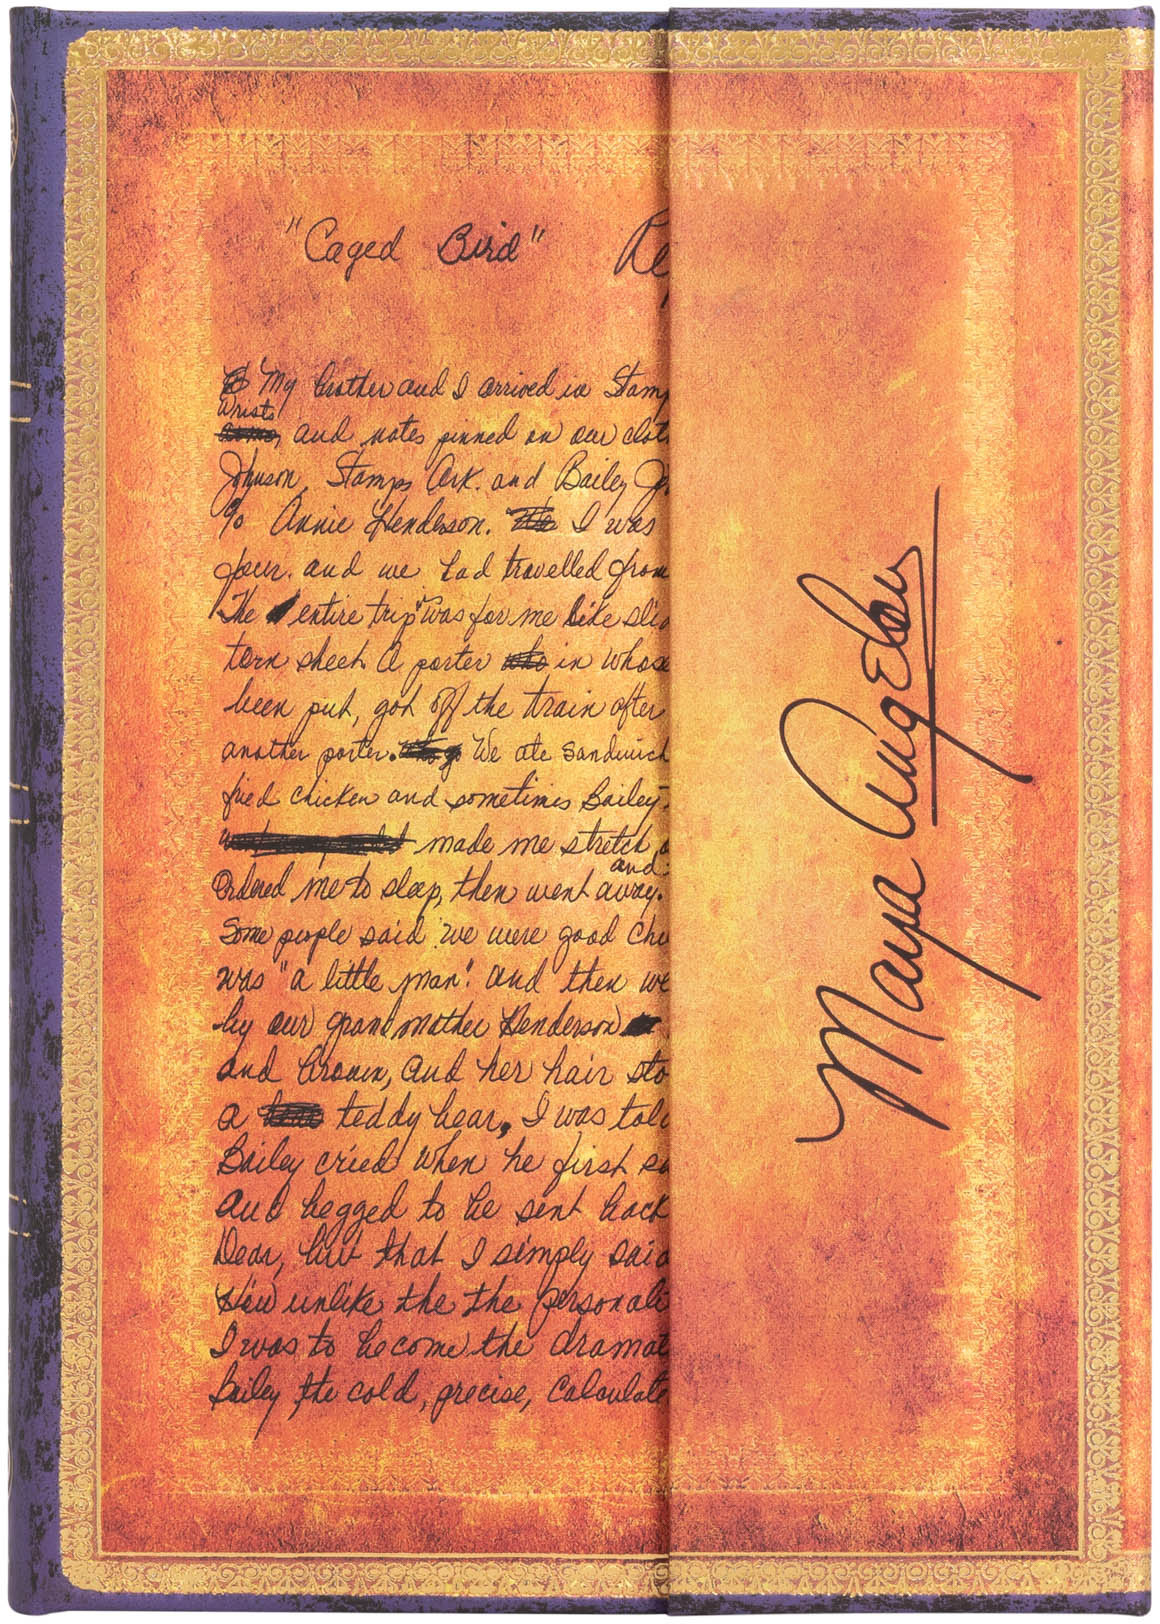 "Caged Bird" Re
My brother and I arrived in Stamp
wrists
and notes pinned on our clot
Johnson, Stamps Ark. and Bailey Jo
c/o Annie Henderson. I was
four. and we had travelled from
The entire trip was for me like slid
torn sheet. A porter in whose
been put, got off the train after
another porter. We ate sandwich
fried chicken and sometimes Bailey
made me stretch
and
ordered me to sleep, then went away.
Some people said we were good chi
was "a little man". and then we
by our grandmother Henderson
and brown, and her hair sto
a teddy bear, I was told
Bailey cried when he first sa
and begged to be sent back
Dear, but that I simply said
How unlike the the personali
I was to become the dramat
Bailey the cold, precise, calculate
Maya Angelou